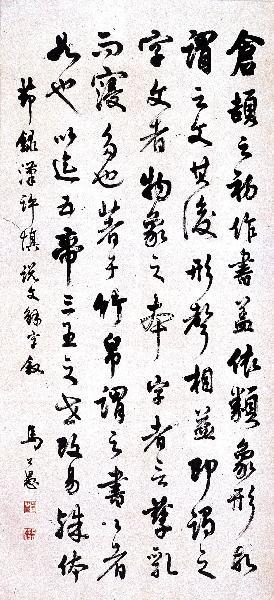 倉頡之初作書蓋依類象形故
謂之文其後形聲相益即謂之
字文者物象之本字者言孳乳
而寖多也著于竹帛謂之書〻者
如也以迄五帝三王之世改易殊体
節錄漢許慎説文解字敘 馬公愚